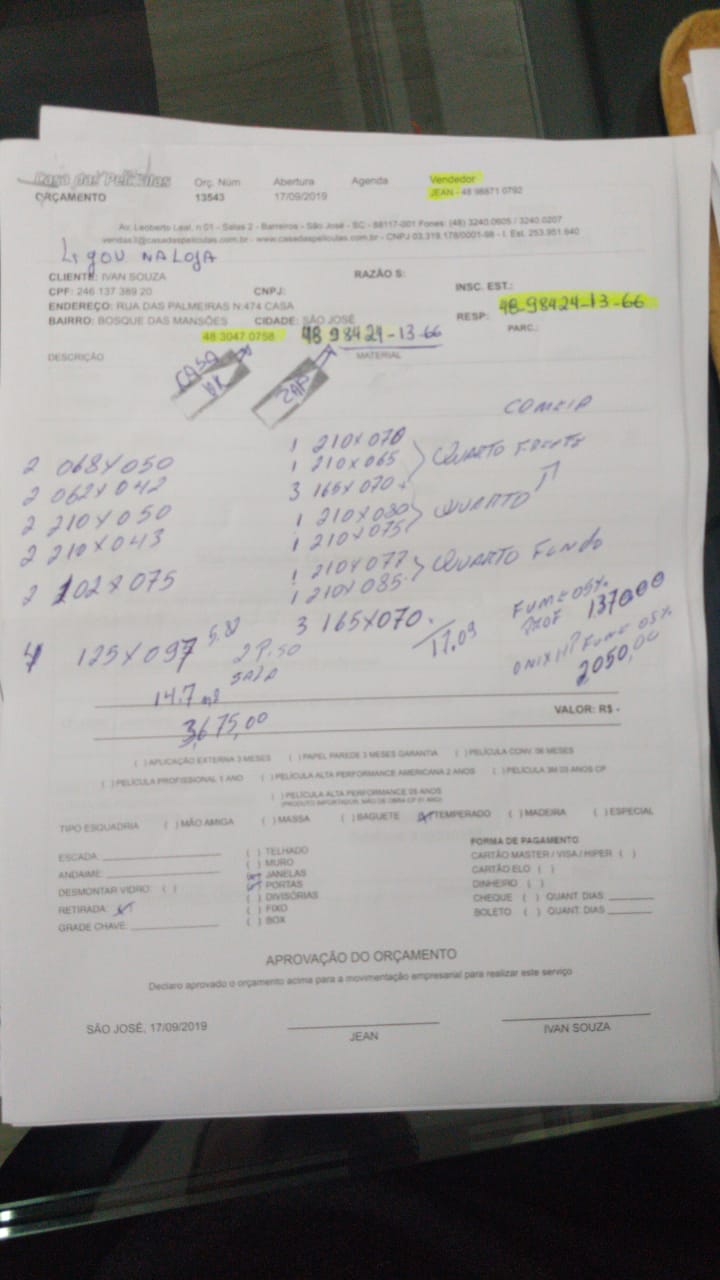 Casa das Películas
ORÇAMENTO
Orç. Núm
13543
Abertura
17/09/2019
Agenda
Vendedor
JEAN - 48 98871 0792
Av. Leoberto Leal, n 01 - Salas 2 - Barreiros - São José - SC - 88117-001 Fones: (48) 3240.0605 / 3240.0207
vendas3@casadaspeliculas.com.br - www.casadaspeliculas.com.br - CNPJ 03.319.178/0001-98 - I. Est. 253.951.640
LIGOU NA LOJA
CLIENTE: IVAN SOUZA
RAZÃO S:
CPF: 246 137 389 20
CNPJ:
INSC. EST.:
ENDEREÇO: RUA DAS PALMEIRAS N:474 CASA
BAIRRO: BOSQUE DAS MANSÕES CIDADE: SÃO JOSÉ
RESP: 48-98424-13-66
48 3047.0758
48 98424-13-66
PARC.:
DESCRIÇÃO
MATERIAL
CASA
ZAP
2 068X050
2 062X042
2 210X050
2 210X043
2 102X075
4 125X097
1 210X070
1 210X065
3 165X070
QUARTO FRENTE
1 210X080
1 210X075
QUARTO
1 210X077
1 210X085
QUARTO FUNDO
3 165X070
17.09
FUME 05%
PROF 1370,00
FUME 05%
2050,00
SALA
14.7 m2
3,675,00
VALOR: R$ -
( ) APLICAÇÃO EXTERNA 3 MESES ( ) PAPEL PAREDE 3 MESES GARANTIA ( ) PELÍCULA CONV. 06 MESES
( ) PELÍCULA PROFISSIONAL 1 ANO ( ) PELÍCULA ALTA PERFORMANCE AMERICANA 2 ANOS ( ) PELÍCULA 3M 03 ANOS CP
( ) PELÍCULA ALTA PERFORMANCE 05 ANOS
TIPO ESQUADRIA ( ) MÃO AMIGA ( ) MASSA ( ) BAGUETE (X) TEMPERADO ( ) MADEIRA ( ) ESPECIAL
ESCADA:
ANDAIME:
DESMONTAR VIDRO: ( )
RETIRADA: X
GRADE CHAVE:
( ) TELHADO
( ) MURO
(X) JANELAS
(X) PORTAS
( ) DIVISÓRIAS
( ) FIXO
( ) BOX
FORMA DE PAGAMENTO
CARTÃO MASTER / VISA / HIPER ( )
CARTÃO ELO ( )
DINHEIRO ( )
CHEQUE ( ) QUANT. DIAS:
BOLETO ( ) QUANT. DIAS
APROVAÇÃO DO ORÇAMENTO
Declaro aprovado o orçamento acima para a movimentação empresarial para realizar este serviço
SÃO JOSÉ, 17/09/2019
JEAN
IVAN SOUZA